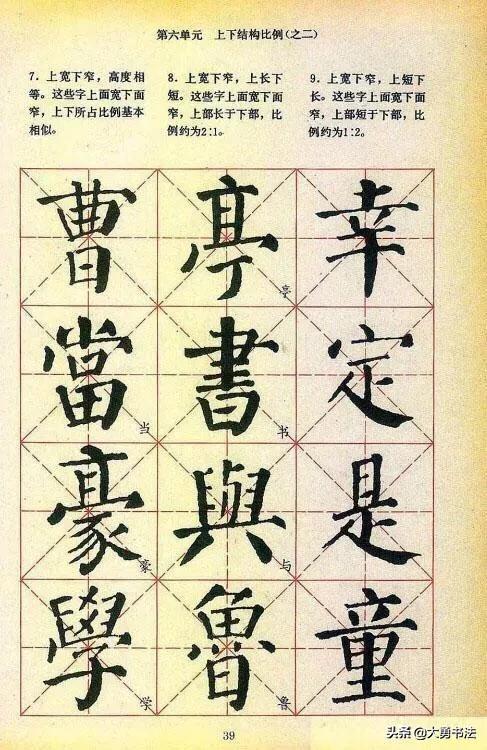 第六单元 上下结构比例(之二)
7．上宽下窄，高度相
等。这些字上面宽下面
窄，上下所占比例基本
相似。
8．上宽下窄，上长下
短。这些字上面宽下面
窄，上部长于下部，比
例约为2∶1。
9．上宽下窄，上短下
长。这些字上面宽下面
窄，上部短于下部，比
例约为1∶2。
曹 亭 亭 幸
當 当 書 书 定
豪 豪 與 与 是
學 学 魯 鲁 童
39
头条 @大勇书法